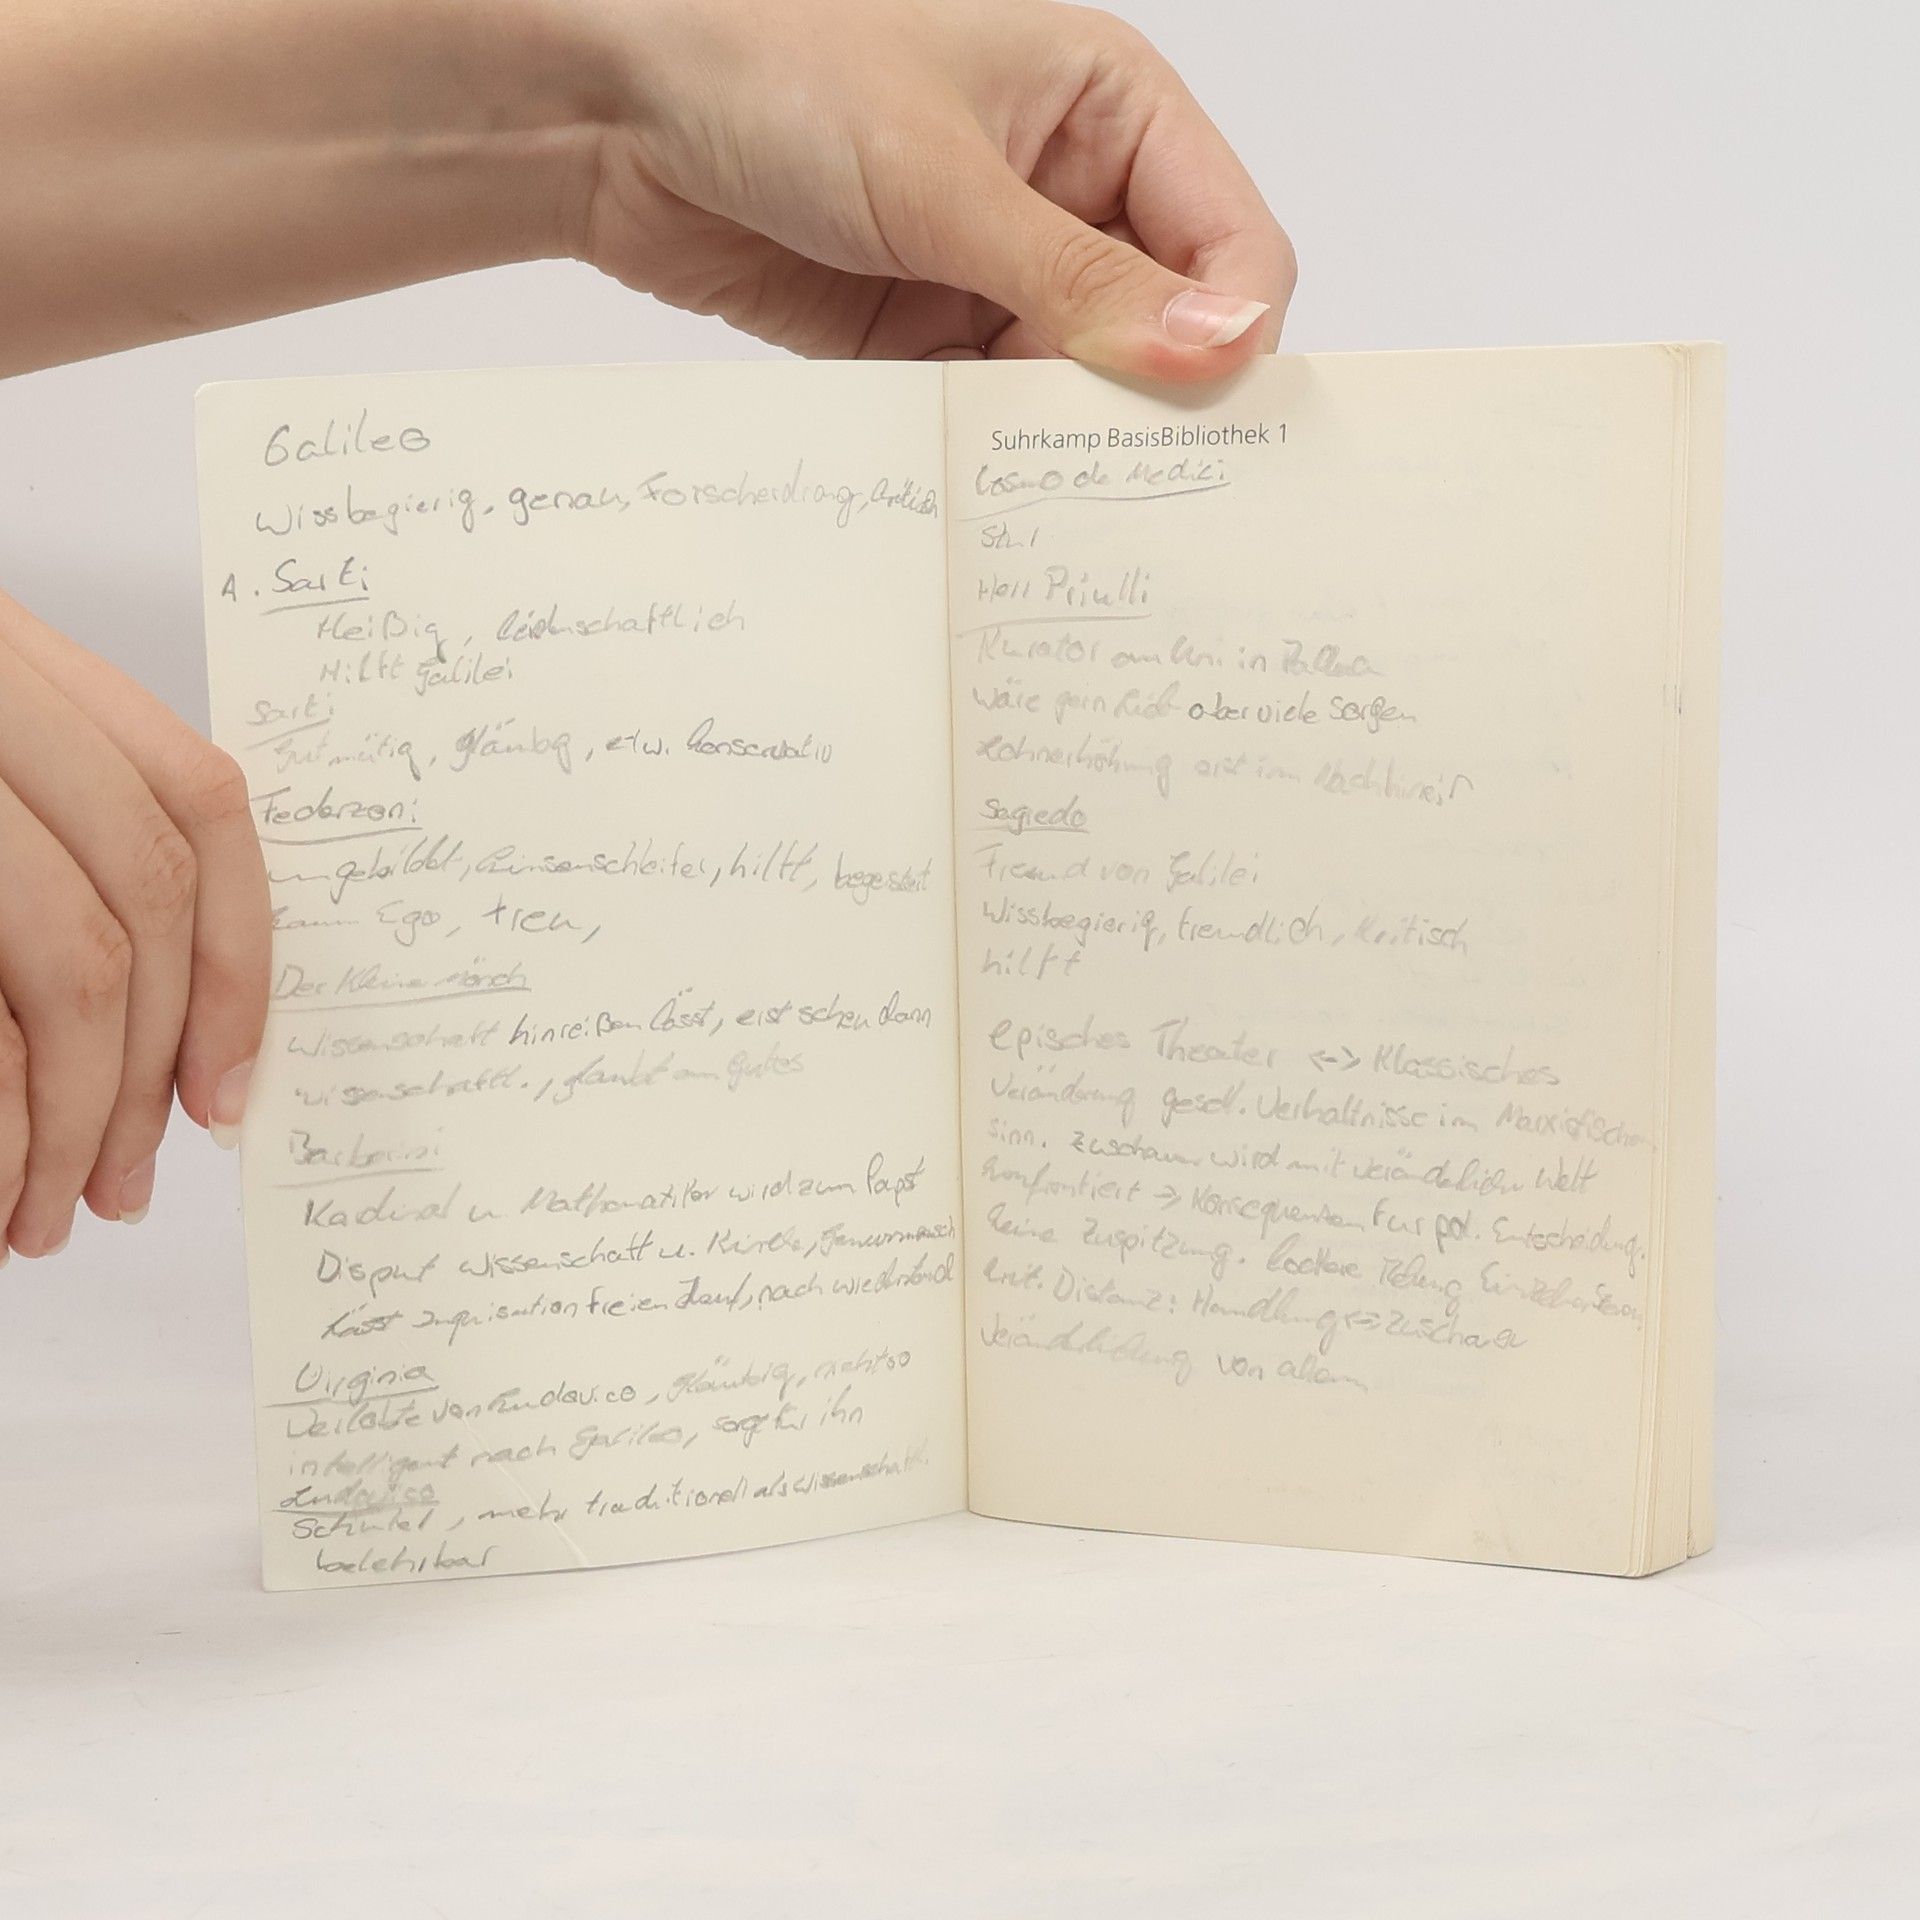 Galileo
Wissbegierig, genau, Forscherdrang, kritisch
A. Sarti
fleißig, leidenschaftlich
Hilft Galilei
Sarti
Gutmütig, gläubig, etw. konservativ
Federzoni
ungebildet, Linsenschleifer, hilft, begeistert
kaum Ego, treu,
Der kleine Mönch
Wissenschaft hinreißen lässt, erst scheu dann
wissenschaftl., glaubt an Gutes
Barberini
Kardinal u. Mathematiker wird zum Papst
Disput Wissenschaft u. Kirche, Genussmensch
Lässt Inquisition freien Lauf, nach Wiederstand
Virginia
Verlobte von Ludovico, gläubig, nicht so
intelligent nach Galileo, sorgt für ihn
Ludovico
Schüler, mehr traditionell als wissenschaftl.
belehrbar
Suhrkamp BasisBibliothek 1
Cosmo de Medici
Herr Priulli
Kurator an Uni in Padua
wäre gern lieb aber viele Sorgen
Lohnerhöhung erst im Nachhinein
Sagredo
Freund von Galilei
Wissbegierig, freundlich, kritisch
hilft
episches Theater <-> Klassisches
Veränderung gesell. Verhältnisse im Marxistischen
Sinn. Zuschauer wird mit veränderlicher Welt
konfrontiert -> Konsequenzen für pol. Entscheidung.
keine Zuspitzung. lockere
krit. Distanz: Handlung <=> Zuschauer
von allem